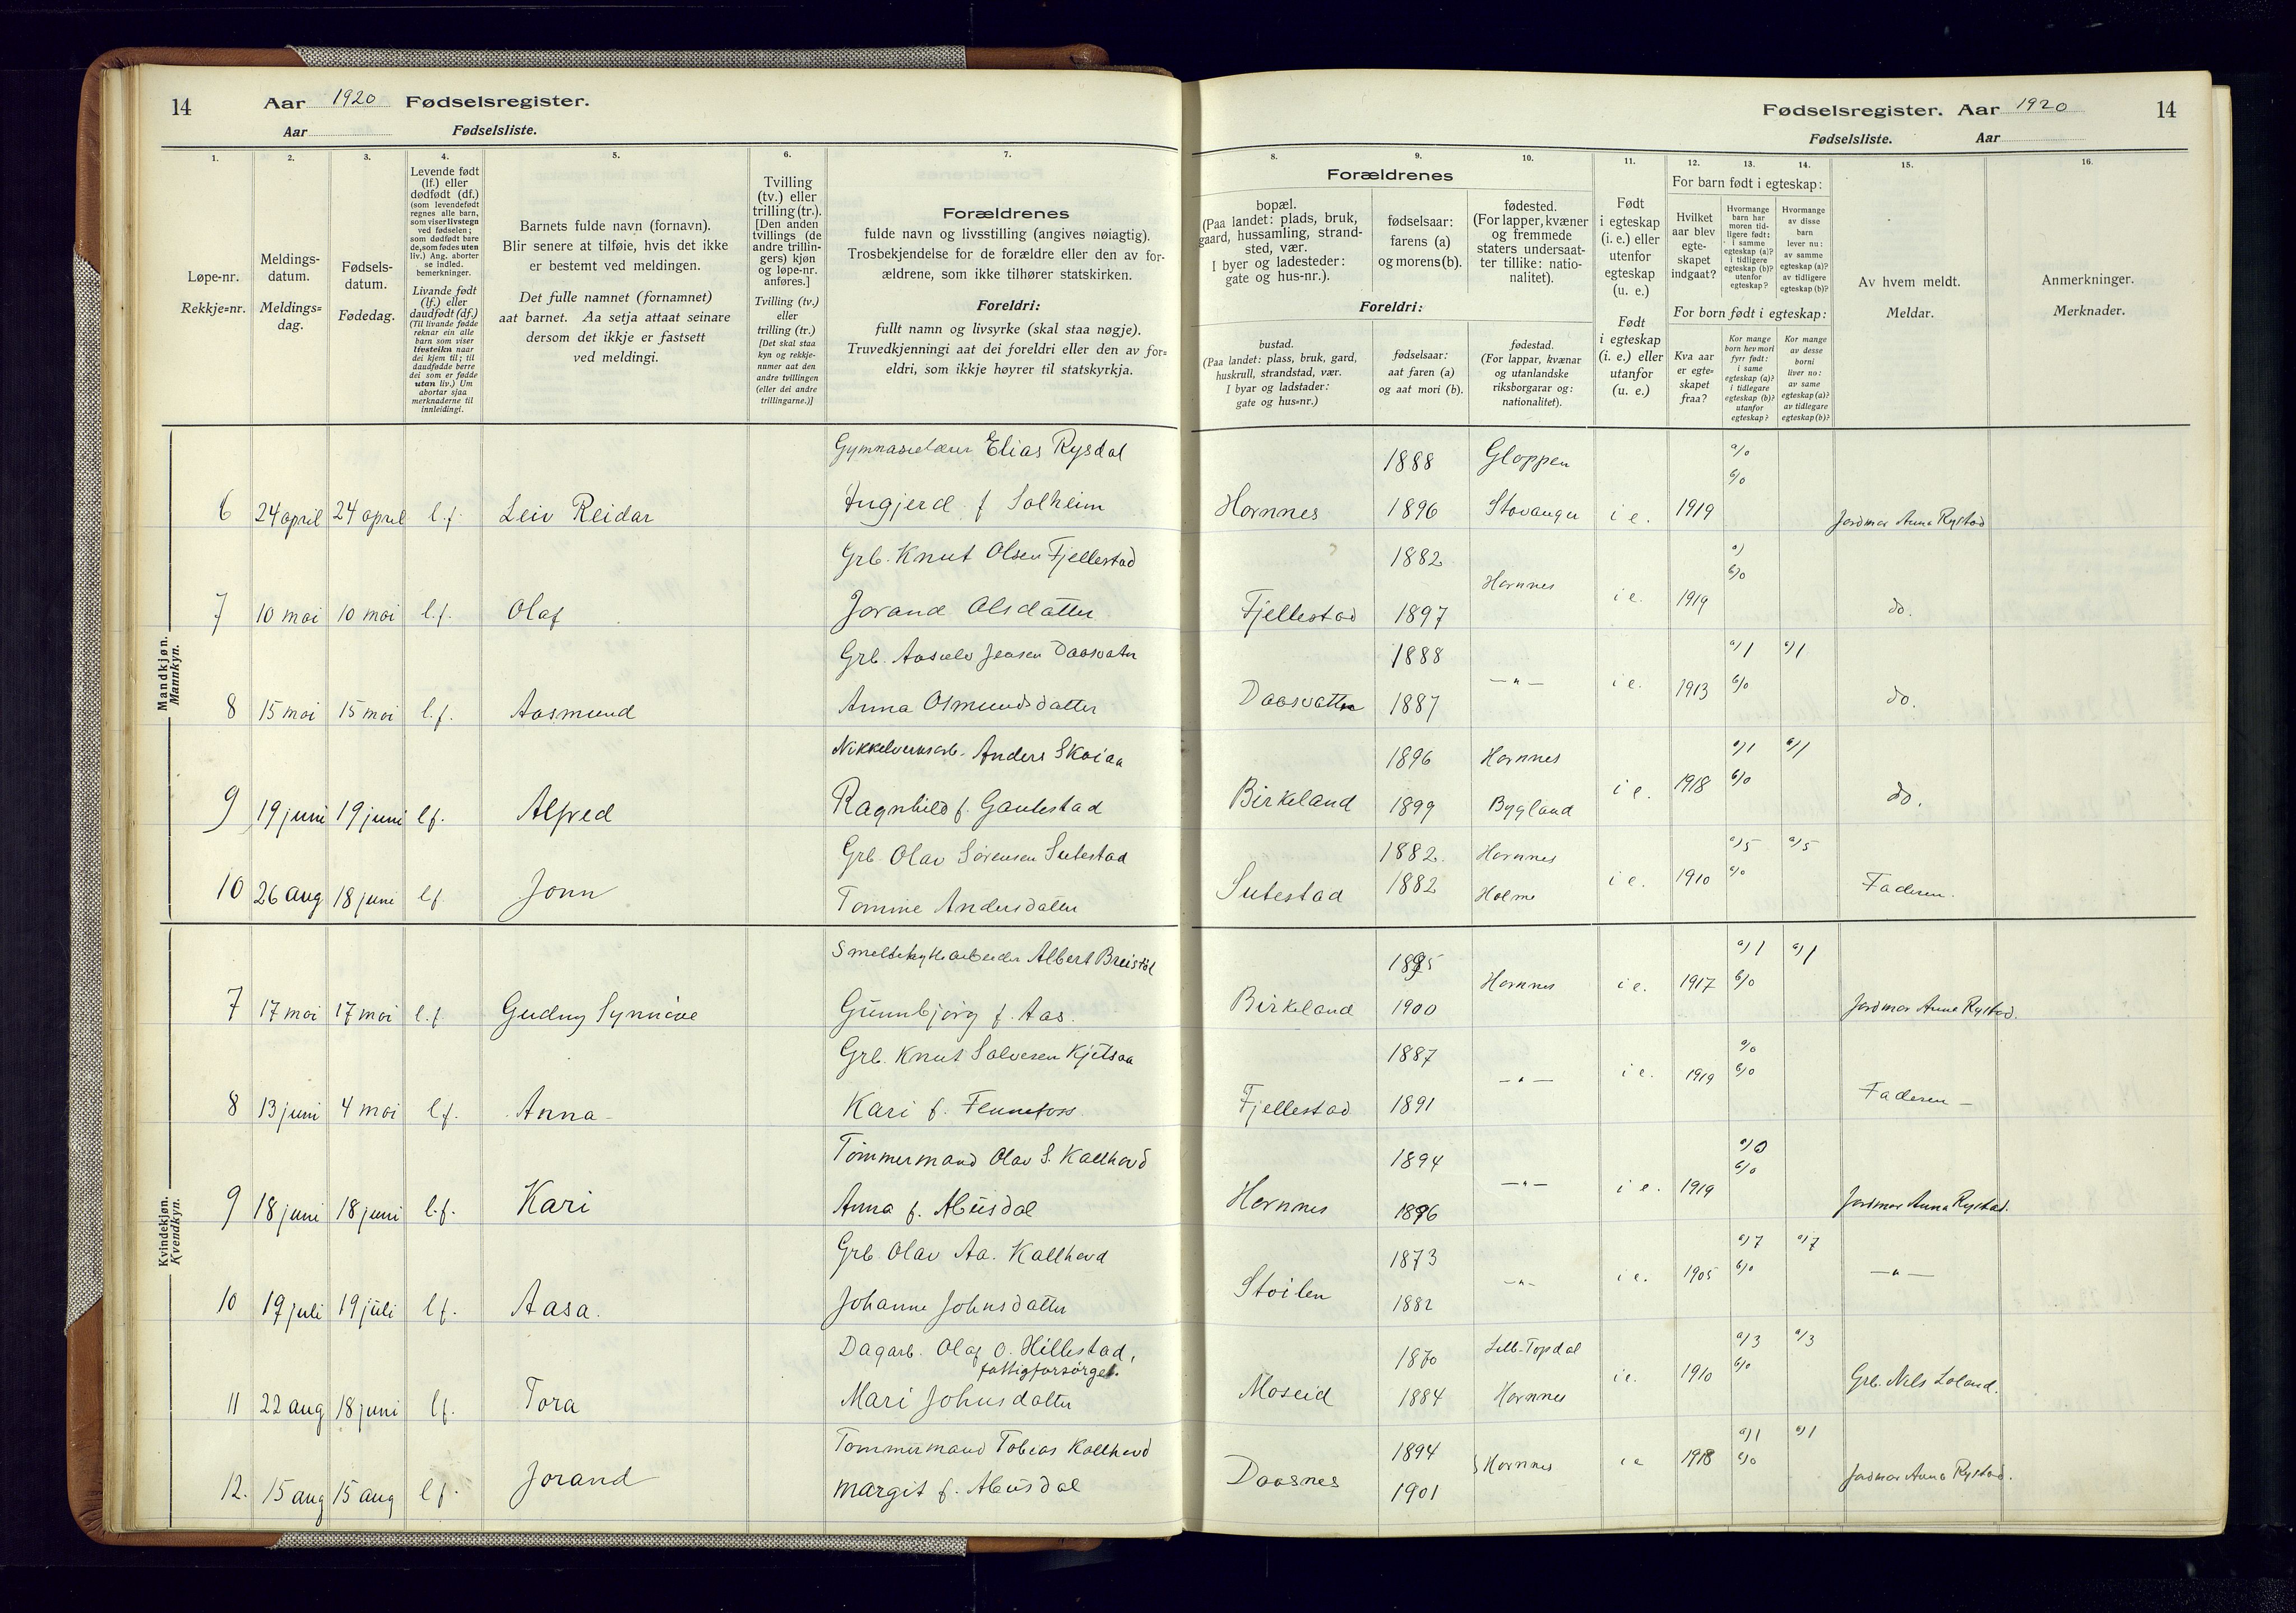 14
Aar 1920 Fødselsregister.
Aar Fødselsliste.
1.
2.
3.
4.
5.
6.
7.
Løpe-nr.
Rekkje=nr.
Meldings-
datum.
Meldings=
dag.
Fødsels-
datum.
Fødedag.
Levende født
(lf.) eller
dødfødt (df.)
(som levendefødt
regnes alle barn,
som viser livstegn
ved fødselen;
som dødfødt bare
de, som fødes uten
liv.) Ang. aborter
se indled.
bemerkninger.
Livande født
(lf.) eller
daudfødt (df.)
(Til livande fødde
reknar ein alle
barn som viser
livsteikn naar
dei kjem til; til
daudfødde berre
dei som er fødde
utan liv.) Um
abortar sjaa
merknaderne til
innleidingi.
Barnets fulde navn (fornavn).
Blir senere at tilføie, hvis det ikke
er bestemt ved meldingen.
Det fulle namnet (fornamnet)
aat barnet. Aa setja attaat seinare
dersom det ikkje er fastsett
ved meldingi.
Tvilling
(tv.) eller
trilling (tr.).
[Den anden
tvillings (de
andre trillin-
gers) kjøn
og løpe-nr.
anføres.]
Tvilling (tv.)
eller
trilling (tr.)
[Det skal staa
kyn og rekkje-
numer aat den
andre tvillingen
(eller dei andre
trillingarne.)]
Forældrenes
fulde navn og livsstilling (angives nøiagtig).
Trosbekjendelse for de forældre eller den av for-
ældrene, som ikke tilhører statskirken.
Foreldri:
fullt namn og livsyrke (skal staa nøgje).
Truvedkjenningi aat dei foreldri eller den av for=
eldri, som ikkje høyrer til statskyrkja.
Mandkjøn.
Mannkyn.
Gymnasielærer Elias Rysdal
6 24 april 24 april l.f. Leiv Reidar Ingjerd f Solheim
Grb. Knut Olsen Fjellestad
7 10 mai 10 mai l.f. Olaf Jorand Olsdatter
Grb. Aasulv Jensen Daasvatn
8 15 mai 15 mai l.f. Aasmund Anna Osmundsdatter
Nikkelverksarb. Anders Skaiaa
9 19 juni 19 juni lf. Alfred Ragnhild f. Gautestad
Grb. Olav Sørensen Sutestad
10 26 aug 18 juni lf Jonn Tomine Andersdatter
Kvindekjøn.
Kvendkyn.
Smeltehyttearbeider Albert Breistøl
7 17 mai 17 mai l.f. Gudny Synnøve Gunnbjørg f. Aas.
Grb. Knut Salvesen Kjetsaa
8 13 juni 4 mai lf. Anna Kari f. Fennefoss
Tømmermand Olav S. Kallhovd
9 18 juni 18 juni l.f. Kari Anna f. Abusdal
Grb. Olav Aa. Kallhovd
10 19 juli 19 juli lf. Aasa. Johanne Johnsdatter
Dagarb. Olaf O. Hillestad,
fattigforsørget.
11 22 aug 18 juni lf. Tora Mari Johnsdatter
Tømmermand Tobias Kallhovd
12. 15 aug 15 aug lf. Jorand Margit f. Abusdal
Fødselsregister. Aar 1920
14
Fødselsliste. Aar
8.
9.
10.
11.
12.
13.
14.
15.
16.
Forældrenes
bopæl.
(Paa landet: plads, bruk,
gaard, hussamling, strand-
sted, vær.
I byer og ladesteder:
gate og hus-nr.).
fødselsaar:
farens (a)
og morens (b).
fødested.
(For lapper, kvæner
og fremmede
staters undersaat-
ter tillike: natio-
nalitet).
Foreldri:
bustad.
(Paa landet: plass, bruk, gard,
huskrull, strandstad, vær.
I byar og ladstader:
gate og hus=nr.)
fødselsaar:
aat faren (a)
og aat mori (b).
fødestad.
(For lappar, kvænar
og utanlandske
riksborgarar og:
nationalitet).
Født
i egteskap
(i. e.) eller
utenfor
egteskap
(u. e.)
Født
i egteskap
(i. e.) eller
utanfor
(u. e.)
For barn født i egteskap:
Hvilket
aar blev
egte-
skapet
indgaat?
Hvormange
barn har
moren tid-
ligere født:
i samme
egteskap (a)?
i tidligere
egteskap (b)?
utenfor
egteskap?
Hvormange
av disse
barn
lever nu:
av samme
egteskap (a)?
av tidligere
egteskap (b)?
For born født i egteskap:
Kva aar
er egte=
skapet
fraa?
Kor mange
born hev mori
fyrr født:
i same
egteskap (a)?
i tidlegare
egteskap (b)?
utanfor
egteskap?
Kor mange
av desse
borni
liver no:
av same
egteskap (a)?
av tidlegare
egteskap (b)?
Av hvem meldt.
Meldar.
Anmerkninger.
Merknader.
1888 Gloppen a/0
b/0
Hornnes 1896 Stavanger i e. 1919 Jordmor Anna Rystad
1882 a)
Hornnes b/0
Fjellestad 1897 i e. 1919 do.
1888 a/1 a/1
Daasvatn 1887 — " — i e. 1913 b/0 do.
1896 Hornnes a/1 a/1
Birkeland 1899 Bygland i e. 1918 b/0 do.
1882. Hornnes a/5 a/5
Sutestad 1882 Holme i e. 1910 b/0 Faderen.
1895 a/1 a/1
Hornnes i e. 1917 b/0
Birkeland 1900 Jordmor Anna Rystad.
1887 a/0
— " — i e. 1919 b/0
Fjellestad 1891 Faderen —
1894 a/0
— " — i e. 1919 b/0
Hornnes 1896 Jordmor Anna Rystad.
1873 a/7 a/7
Stoilen — " — i e. 1905 b/0 — " —
1882
1870 Lill-Topdal a/3 a/3
i e. 1910 b/0
Moseid 1884 Hornnes Grb. Nils Loland.
1894 a/1 a/1
Daasnes Hornnes i e 1918 b/0 Jordmor Anna Rystad.
1901